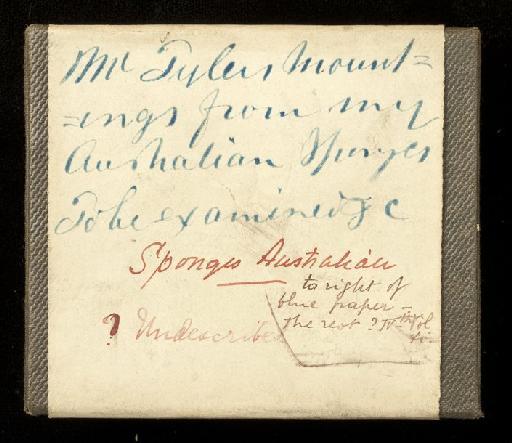 Mr Tylers Mount=
=ings from my
Australian Sponges
To be examined &c
Sponges Australian
to right of
blue paper -
the rest ?
? Undescribed